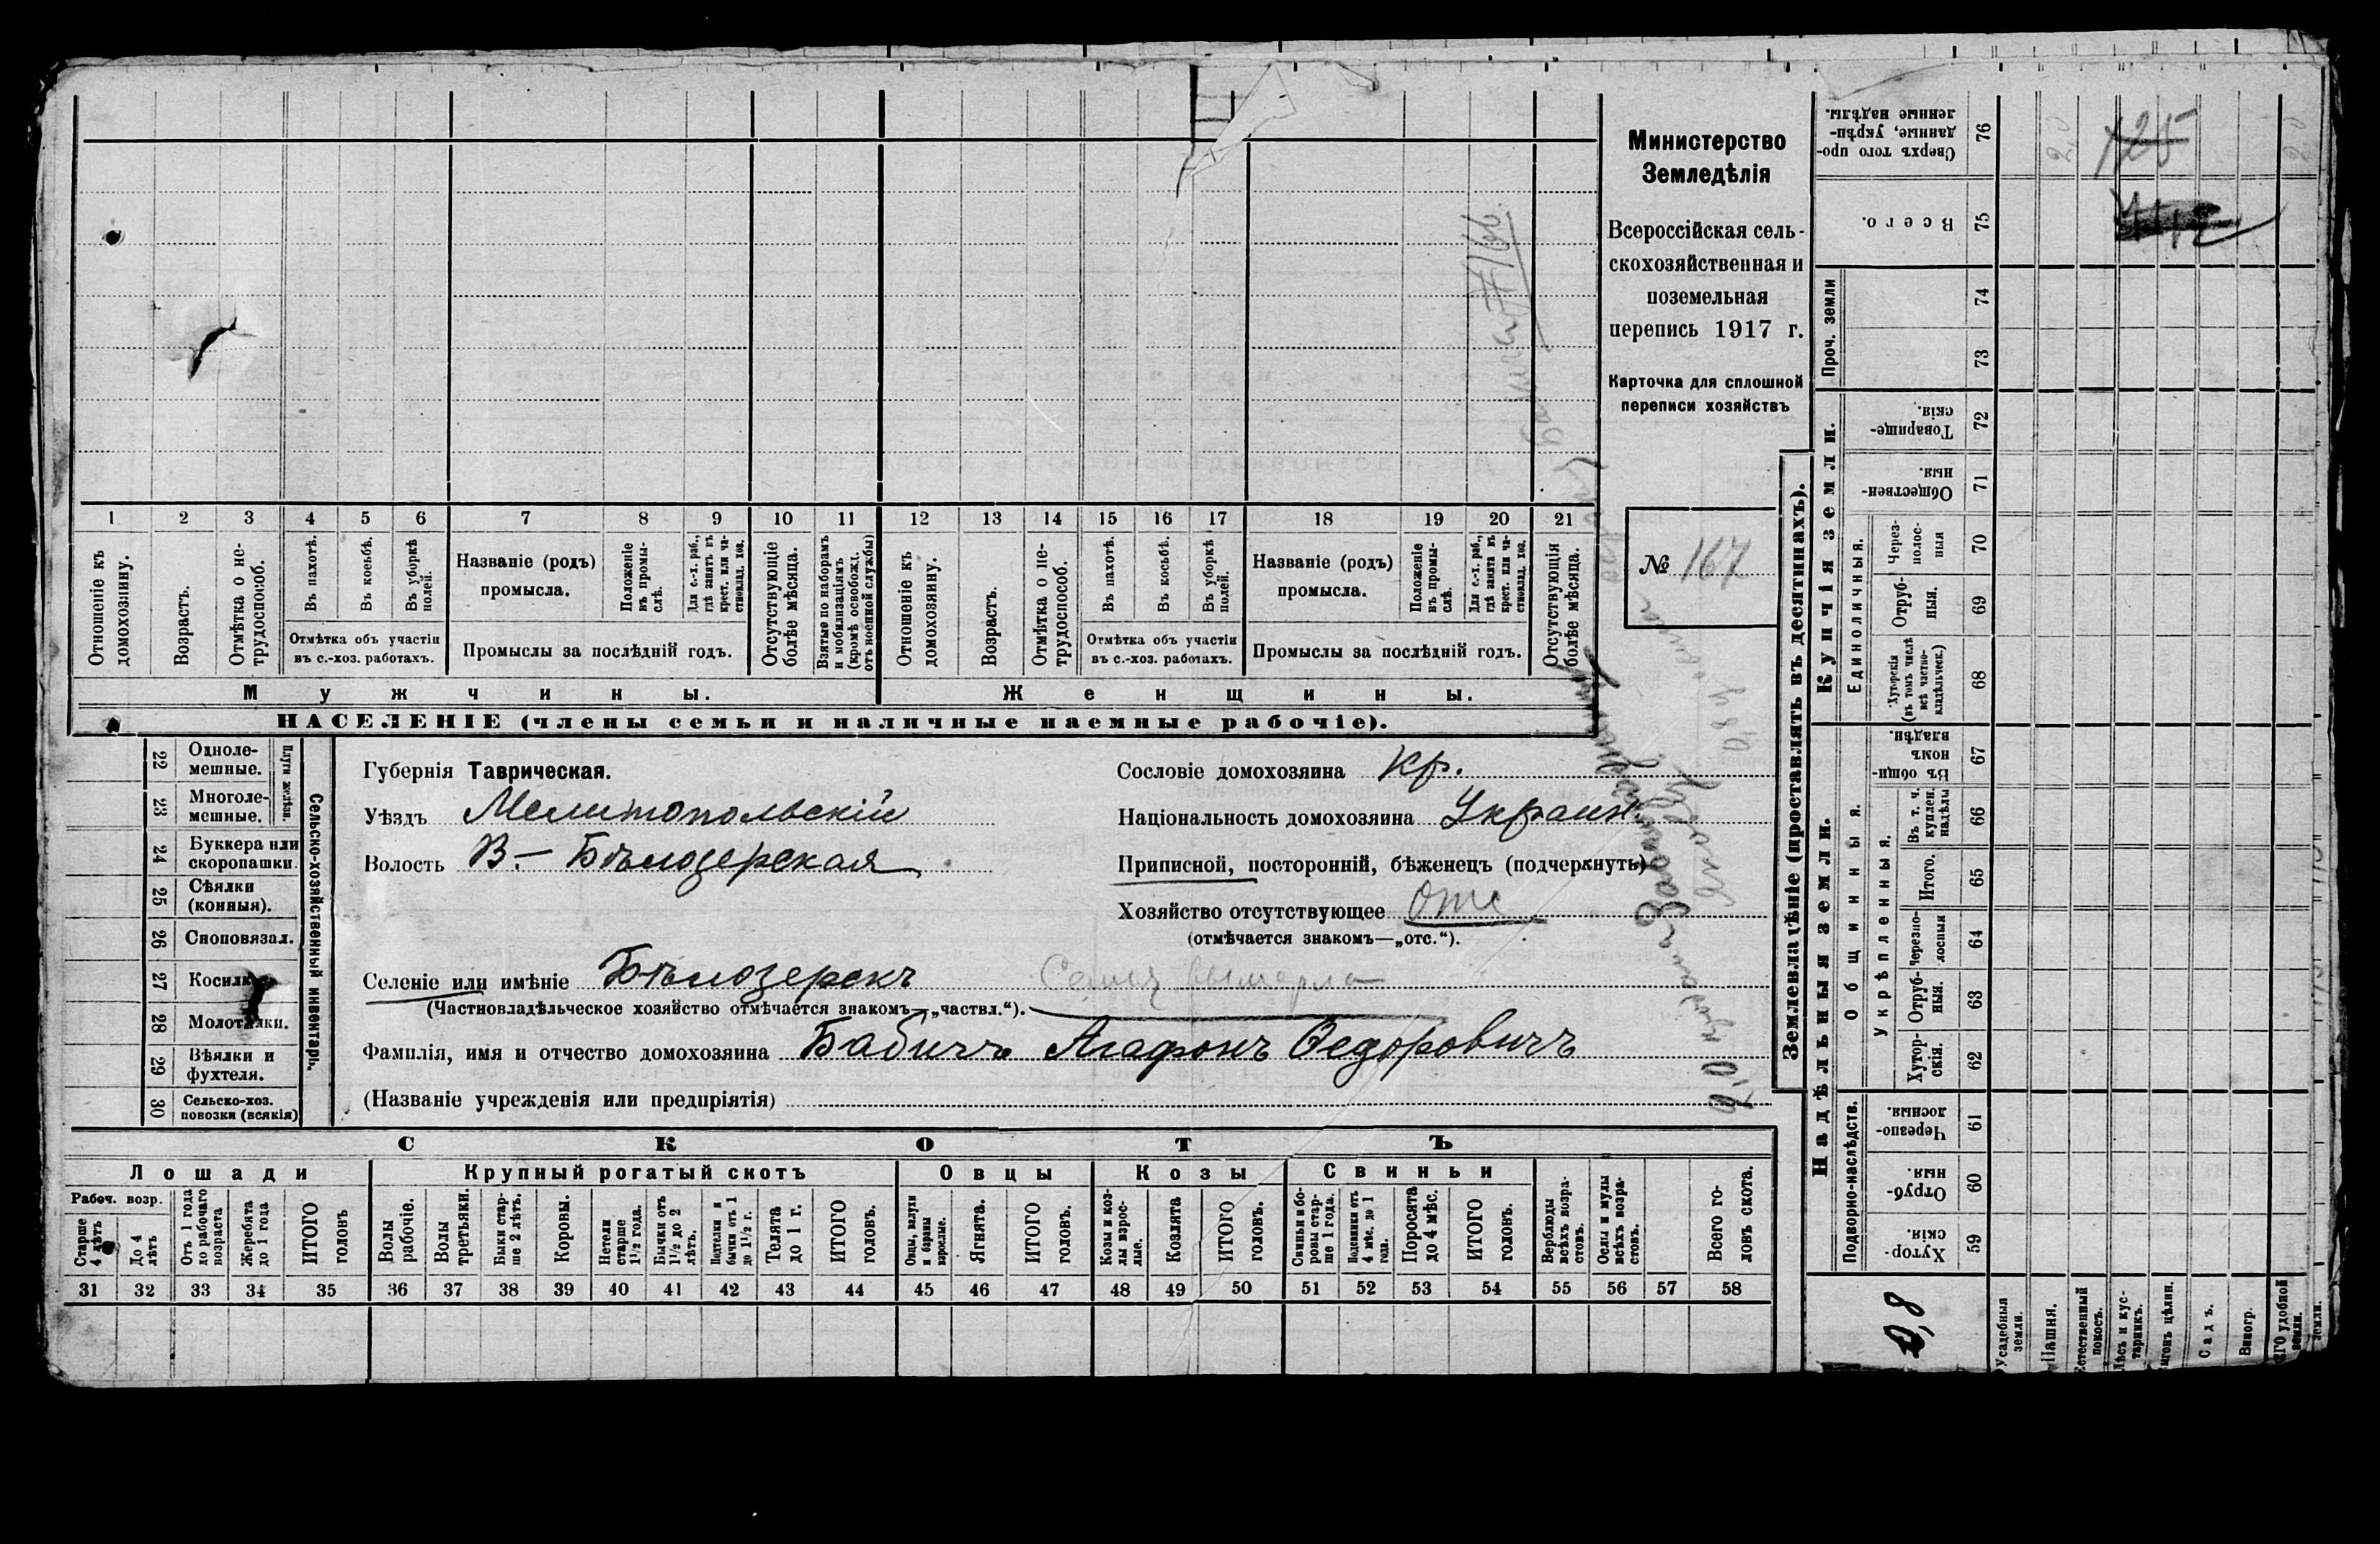 Министерство
Земледѣлія
Всероссійская сель-
скохозяйственная и
поземельная
перепись 1917 г.
Карточка для сплошной
переписи хозяйствъ
№ 167
1 2 3 4 5 6 7 8 9 10 11 12 13 14 15 16 17 18 19 20 21
Отношеніе къ домохозяину.
Возрастъ.
Отмѣтка о не-трудоспособ.
Въ пахотѣ.
Въ косьбѣ.
Въ уборкѣ полей.
Отмѣтка объ участіи
въ с.-хоз. работахъ.
Названіе (родъ)
промысла.
Положеніе въ промы-слѣ.
Для с.-х. раб., гдѣ занятъ въ крест. или ча-стновлад. хоз.
Промыслы за послѣдній годъ.
Отсутствующіе болѣе мѣсяца.
Взятые по наборамъ и мобилизаціямъ (кромѣ освобожд. отъ военной службы)
Отношеніе къ домохозяину.
Возрастъ.
Отмѣтка о не-трудоспособ.
Въ пахотѣ.
Въ косьбѣ.
Въ уборкѣ полей.
Отмѣтка объ участіи
въ с.-хоз. работахъ.
Названіе (родъ)
промысла.
Положеніе въ промы-слѣ.
Для с.-х. раб., гдѣ занята въ крест. или ча-стновлад. хоз.
Промыслы за послѣдній годъ.
Отсутствующія болѣе мѣсяца.
Мужчины.
Женщины.
НАСЕЛЕНІЕ (члены семьи и наличные наемные рабочіе).
Сельско-хозяйственный инвентарь.
Плуги желѣзн.
22 Одноле-мешные.
23 Многоле-мешные.
24 Буккера или скоропашки.
25 Сѣялки (конныя).
26 Сноповязал.
27 Косилки
28 Молотилки.
29 Вѣялки и фухтеля.
30 Сельско-хоз. повозки (всякія)
Губернія Таврическая.
Уѣздъ Мелитопольскій
Волость В-Бѣлозерская
Сословіе домохозяина кр.
Національность домохозяина Украин.
Приписной, посторонній, бѣженецъ (подчеркнуть)
Хозяйство отсутствующее Отс
(отмѣчается знакомъ—„отс.“).
Селеніе или имѣніе Бѣлозерскъ Семья вымерла
(Частновладѣльческое хозяйство отмѣчается знакомъ—„частвл.“).
Фамилія, имя и отчество домохозяина Бабичъ Агафонъ Ѳедоровичъ
(Названіе учрежденія или предпріятія)
СКОТЪ
Лошади
Крупный рогатый скотъ
Овцы
Козы
Свиньи
Рабоч. возр.
Старше 4 лѣтъ
До 4 лѣтъ
Отъ 1 года до рабочаго возраста
Жеребята до 1 года
ИТОГО головъ
Волы рабочіе.
Волы третьяки.
Быки стар-ше 2 лѣтъ.
Коровы.
Нетели старше 1½ года.
Бычки отъ 1½ до 2 лѣтъ.
Подтелки и бычки отъ 1 до 1½ г.
Телята до 1 г.
ИТОГО головъ.
Овцы, валухи и бараны взрослые.
Ягнята.
ИТОГО головъ.
Козы и коз-лы взрос-лые.
Козлята
ИТОГО головъ.
Свиньи и бо-ровы стар-ше 1 года.
Подсвинки отъ 4 мѣс. до 1 года.
Поросята до 4 мѣс.
ИТОГО головъ.
Верблюды всѣхъ возра-стовъ.
Ослы и мулы всѣхъ возра-стовъ.
Всего го-ловъ скота.
31 32 33 34 35 36 37 38 39 40 41 42 43 44 45 46 47 48 49 50 51 52 53 54 55 56 57 58
Землевладѣніе (проставлять въ десятинахъ).
Надѣльныя земли.
Купчія земли.
Проч. земли
Сверхъ того про-данные, укрѣп-ленные надѣлы. 76
Всего. 75
74
73
Товарище-скія. 72
Обществен-ныя. 71
Единоличныя.
Через-полос-ныя 70
Отруб-ныя. 69
Хуторскія (въ томъ числѣ всѣ частно-владѣльческ.) 68
Общинныя.
Въ общи-номъ владѣн. 67
Укрѣпленныя.
Въ т. ч. куплен. надѣлы 66
Итого. 65
Черезпо-лосныя 64
Отруб-ныя. 63
Хутор-скія. 62
Подворно-наслѣдств.
Черезпо-лосныя. 61
Отруб-ныя. 60
Хутор-скія. 59
Усадебныя земли.
Пашня.
Естественный покосъ.
Лѣсъ и кус-тарникъ.
Выгонъ цѣлин.
Садъ.
Виногр.
ИТОГО удобной земли.
2,0
125